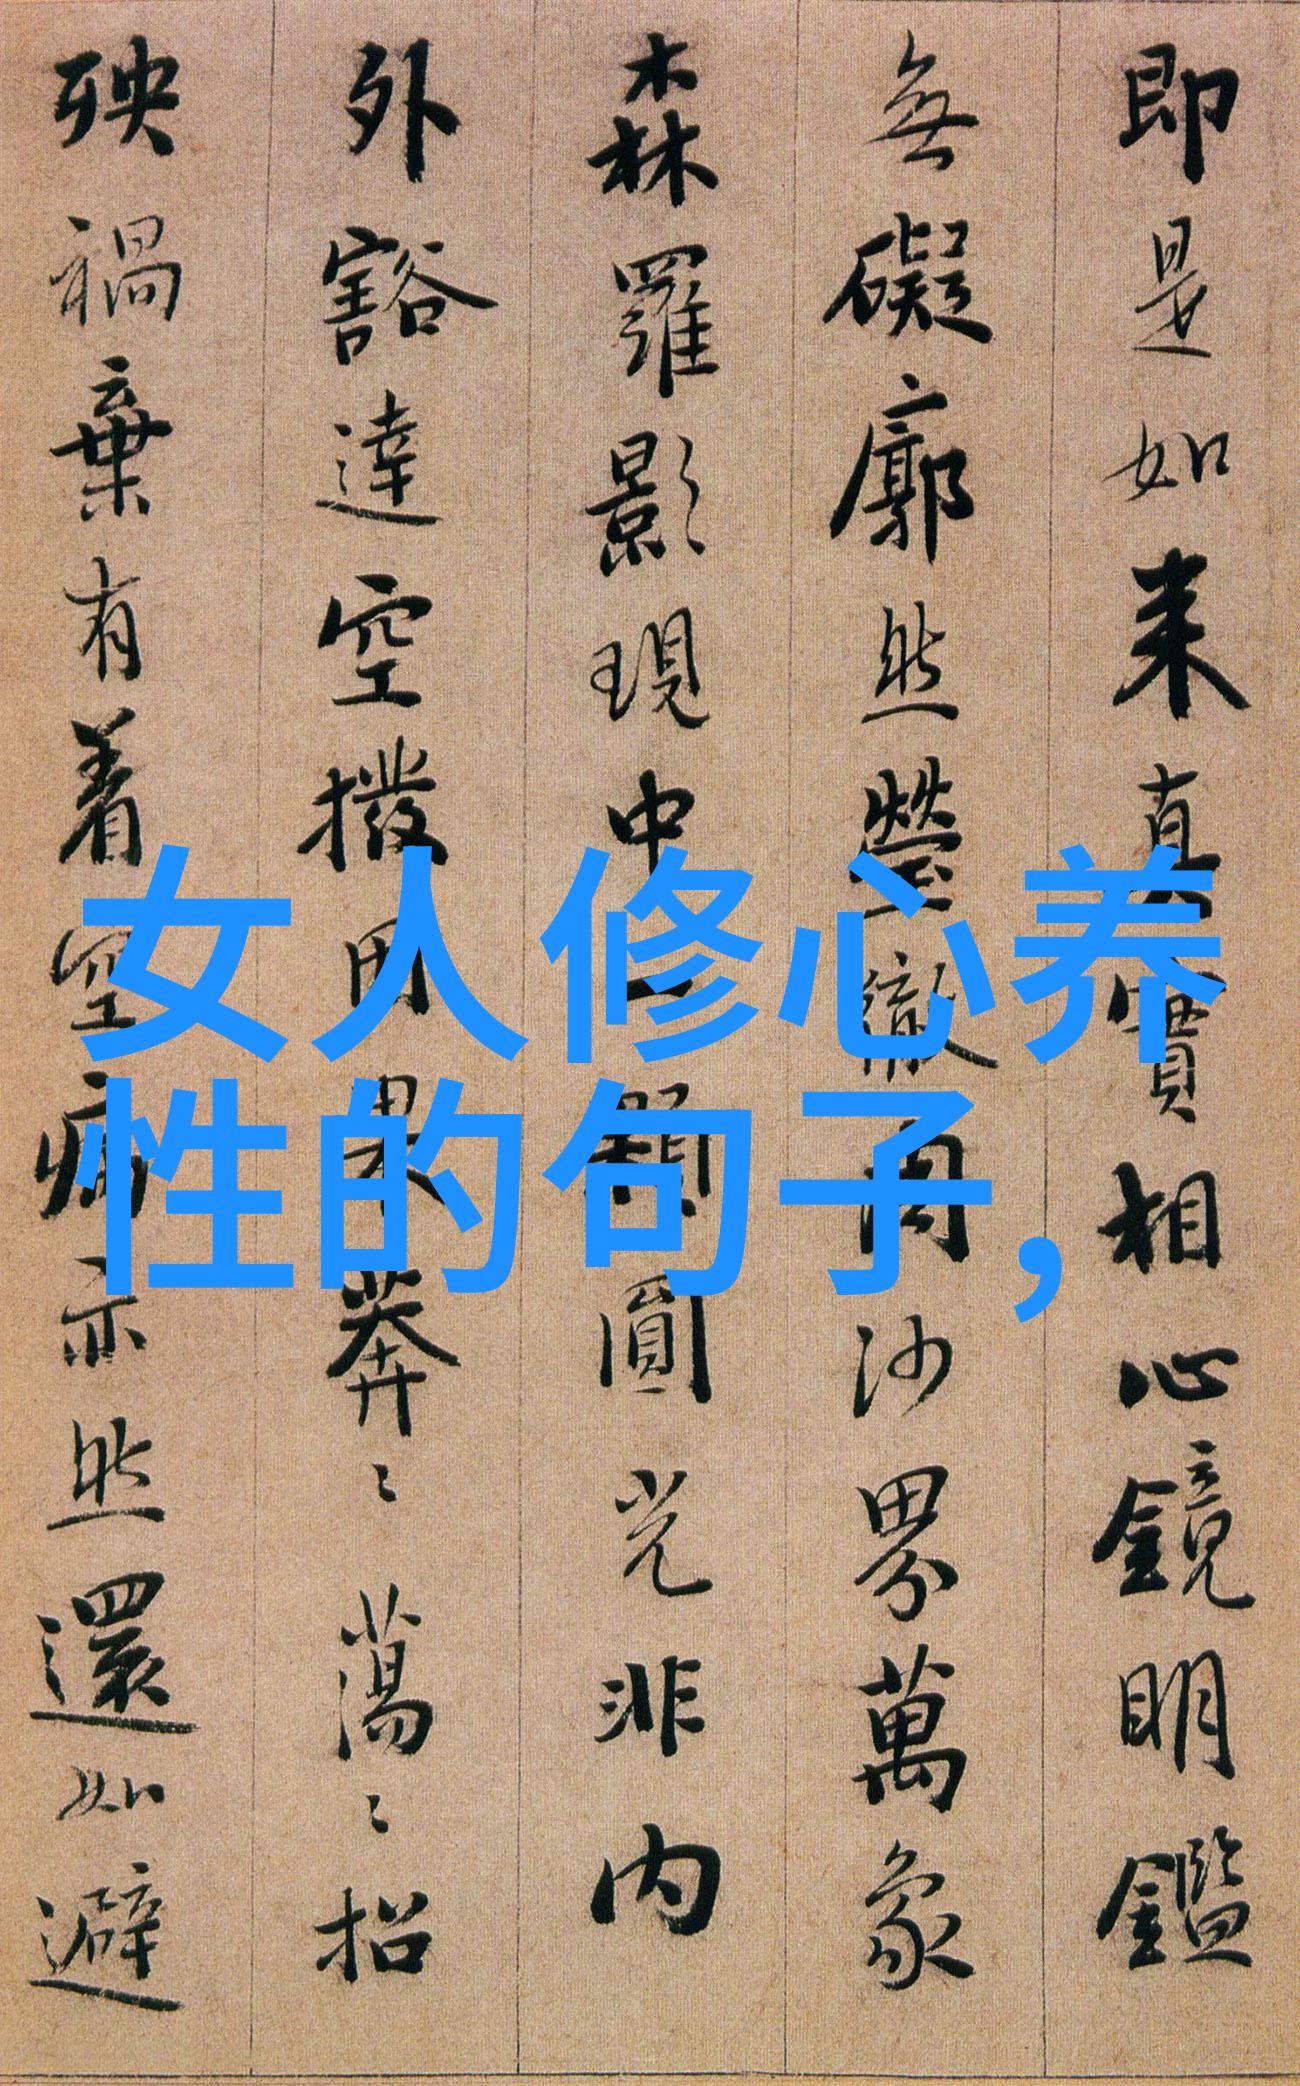 即是如来真實相心鏡明鑑
無礙廓然瑩徹周沙界萬象
森羅影現中一顆圓光非内
外豁達空撥因果莽〻蕩〻招
殃禍棄有着空病亦然還如避
女人修心养
性的句子，